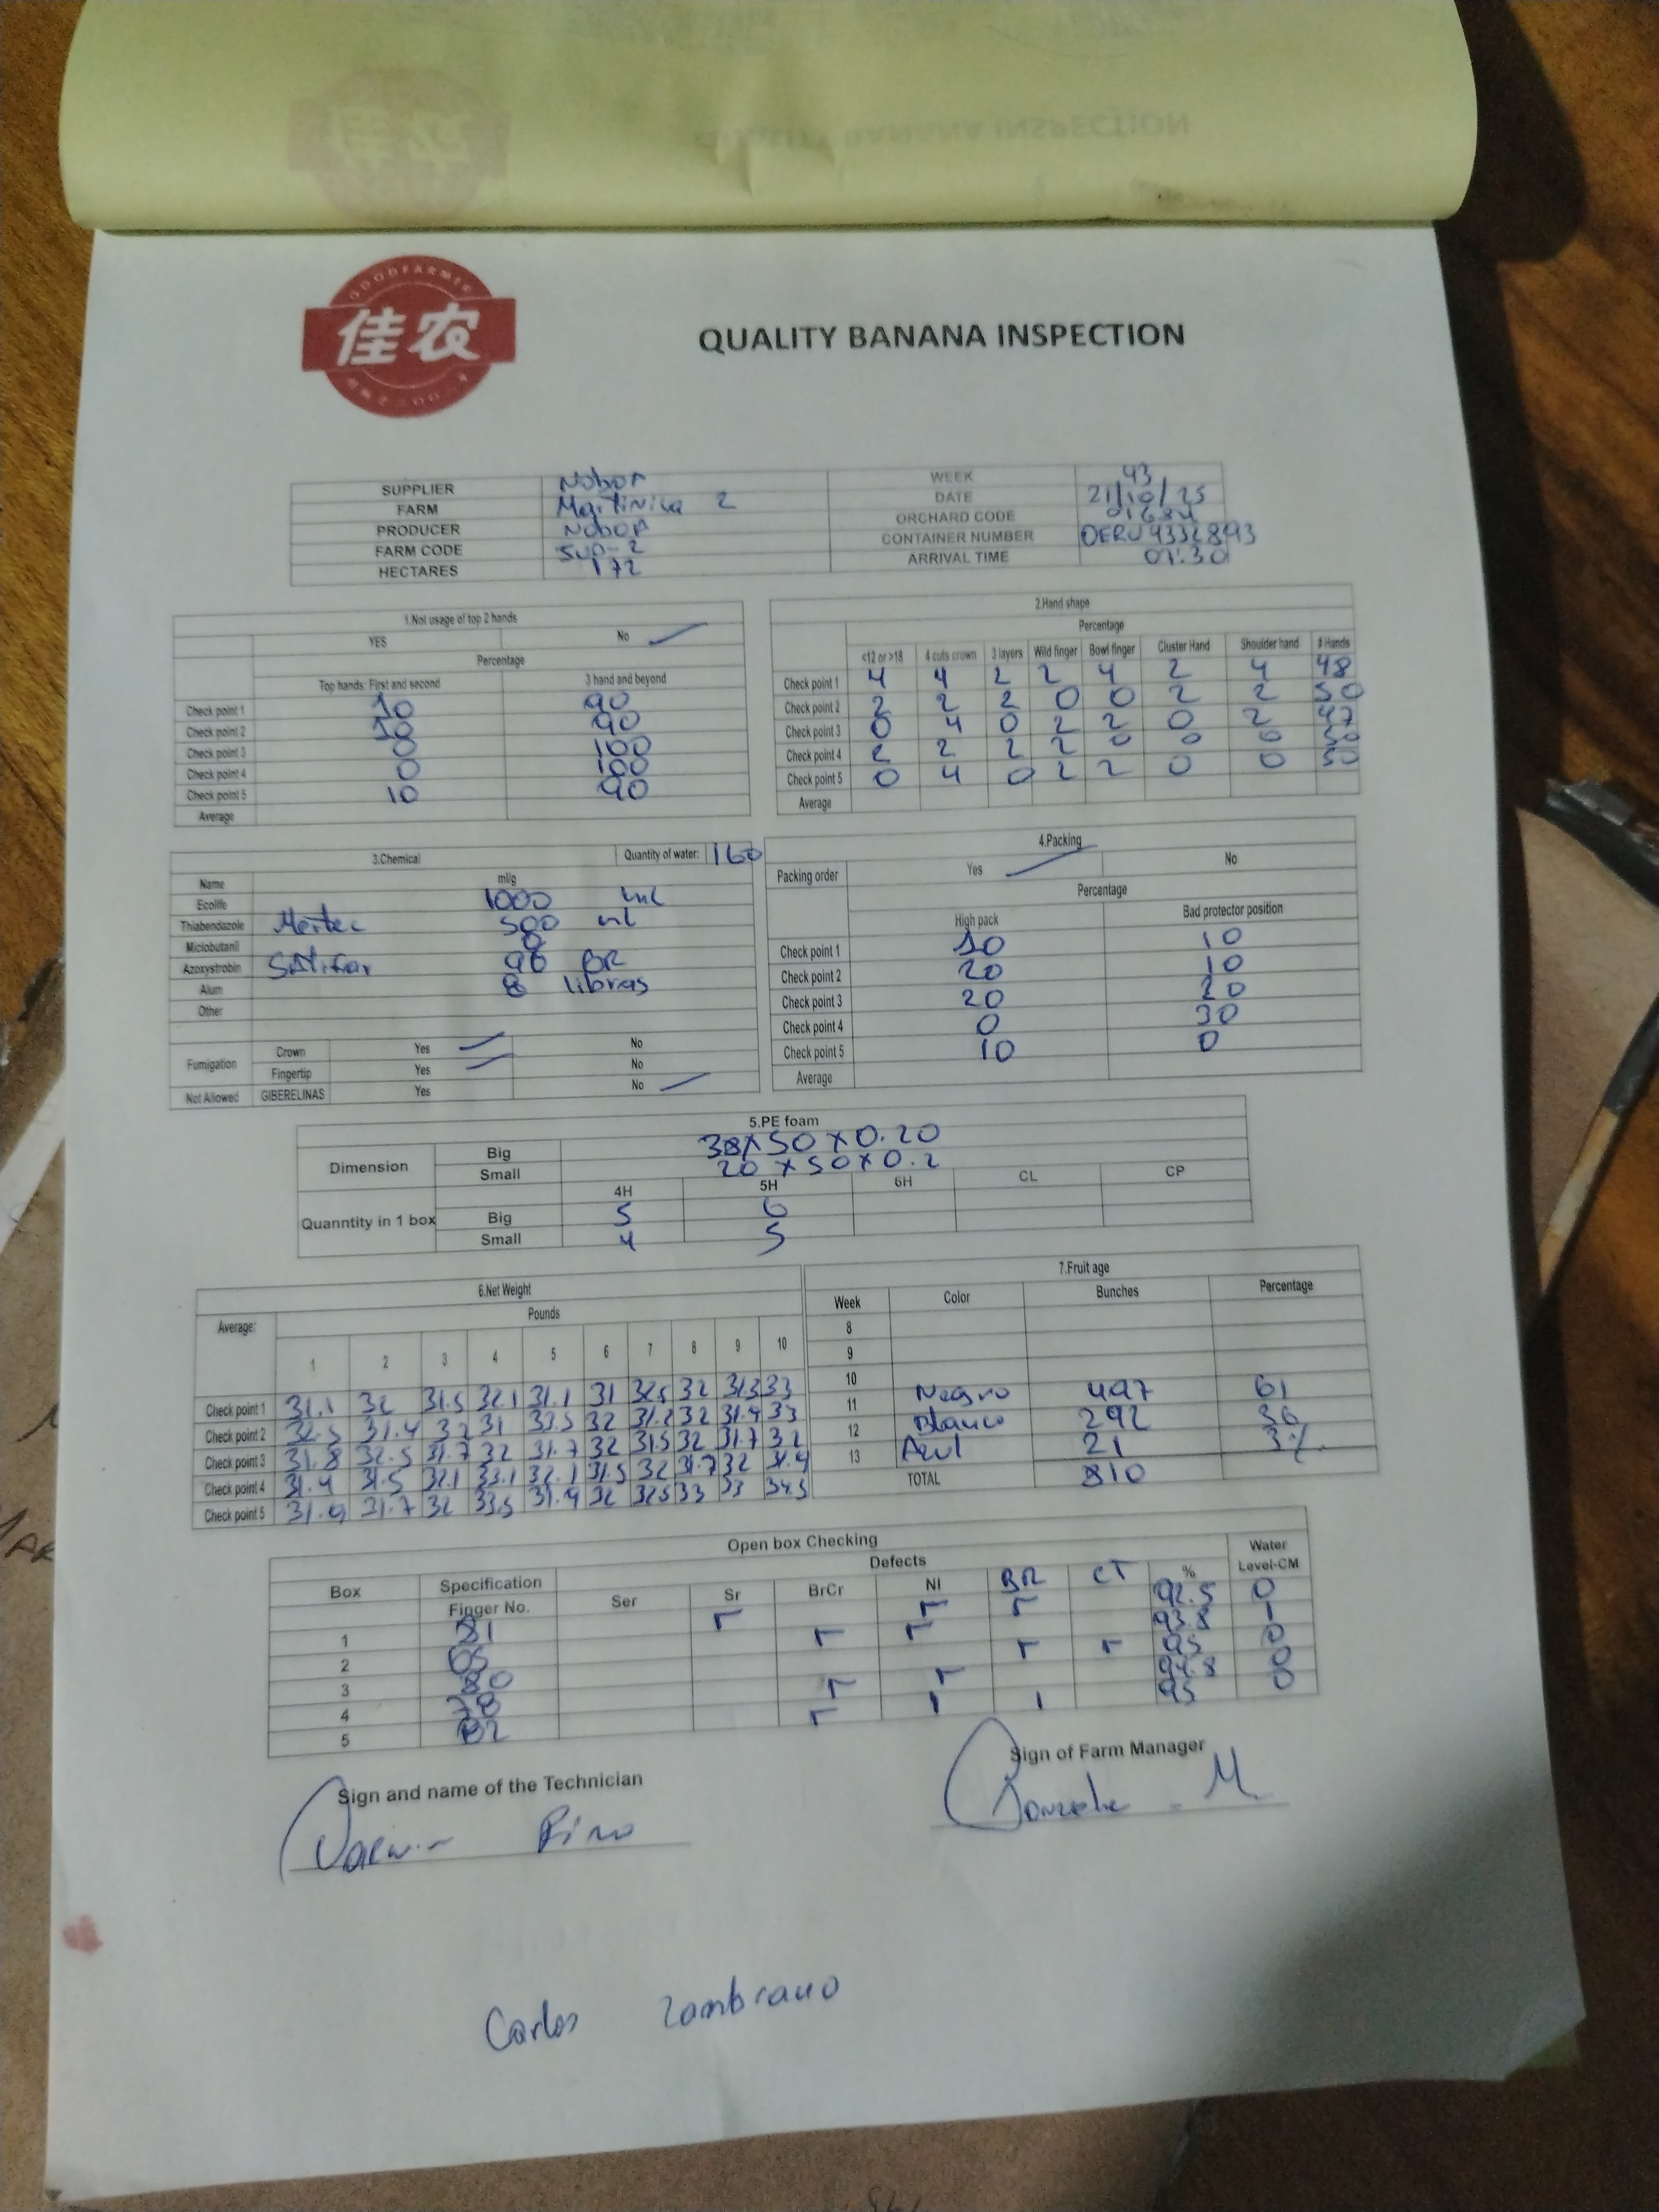 GOODFARMER
佳农
QUALITY BANANA INSPECTION
SUPPLIER Nobop WEEK 43
FARM Martinica 2 DATE 21/10/25
PRODUCER Nobop ORCHARD CODE
FARM CODE SUP-2 CONTAINER NUMBER
HECTARES 172 ARRIVAL TIME 07:30
1.Not usage of top 2 hands
YES No
Percentage
Top hands: First and second 3 hand and beyond
Check point 1 10 90
Check point 2 10 90
Check point 3 0 100
Check point 4 0 100
Check point 5 10 90
Average
2.Hand shape
Percentage
<12 or >18 4 cuts crown 3 layers Wild finger Bowl finger Cluster Hand Shoulder hand # Hands
Check point 1 4 4 2 2 4 2 4 48
Check point 2 2 2 2 0 0 2 2 50
Check point 3 0 4 0 2 2 0 2 47
Check point 4 2 2 2 2 0 0 0 50
Check point 5 0 4 0 2 2 0 0 50
Average
3.Chemical Quantity of water: 160
Name ml/g
Ecolife 1000 ml
Thiabendazole Mertec 500 ml
Miclobutanil 0
Azoxystrobin 96 GR
Alum 8 libras
Other
Fumigation Crown Yes No
Fingertip Yes No
Not Allowed GIBERELINAS Yes No
4.Packing
Packing order Yes No
Percentage
High pack Bad protector position
Check point 1 10 10
Check point 2 20 10
Check point 3 20 20
Check point 4 0 30
Check point 5 10 0
Average
5.PE foam
Dimension Big 38x50x0.20
Small 20x50x0.2
4H 5H 6H CL CP
Quanntity in 1 box Big 5 6
Small 4 5
6.Net Weight
Pounds
Average:
1 2 3 4 5 6 7 8 9 10
Check point 1 31.1 32 31.5 32.1 31.1 31 32.5 32 31.3 33
Check point 2 32.5 31.4 32 31 33.5 32 31.2 32 31.4 33
Check point 3 31.8 32.5 31.7 32 31.7 32 31.5 32 31.7 32
Check point 4 31.4 31.5 32.1 33.1 32.1 31.5 32 31.7 32 31.4
Check point 5 31.9 31.7 32 33.5 31.4 32 32.5 33 33 34.5
7.Fruit age
Week Color Bunches Percentage
8
9
10
11 Negro 497 61
12 Blanco 292 36
13 Azul 21 3%
TOTAL 810
Open box Checking
Box Specification Defects Water
Finger No. Ser Sr BrCr NI BR CT % Level-CM
1 81 92.5 0
2 65 93.8 1
3 80 95 0
4 78 94.8 0
5 82 95 0
Sign and name of the Technician
Sign of Farm Manager
Carlos Zambrano